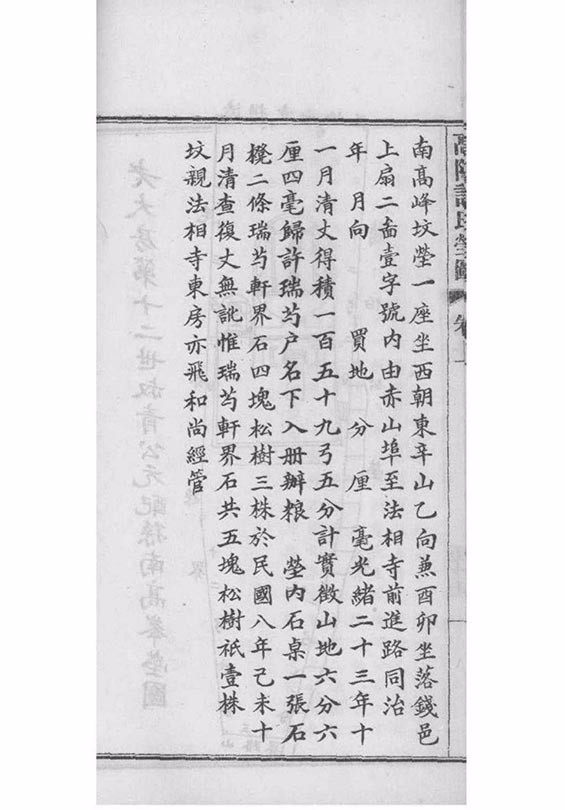 南高峰坟塋一座坐西朝東辛山乙向兼酉卯坐落錢邑
上扇二啚壹字號内由赤山埠至法相寺前進路同治
年　月向　　買地　分　厘　毫光緒二十三年十
一月清丈得積一百五十九弓五分計實徴山地六分六
厘四毫歸許瑞芍户名下入册辦粮　塋内石桌一張石
櫈二條瑞芍軒界石四塊松樹三株於民國八年己未十
月清查復丈無訛惟瑞芍軒界石共五塊松樹祇壹株
坟親法相寺東房亦飛和尚經管
老大房第十二世叔青公元配徐南高峯塋圖